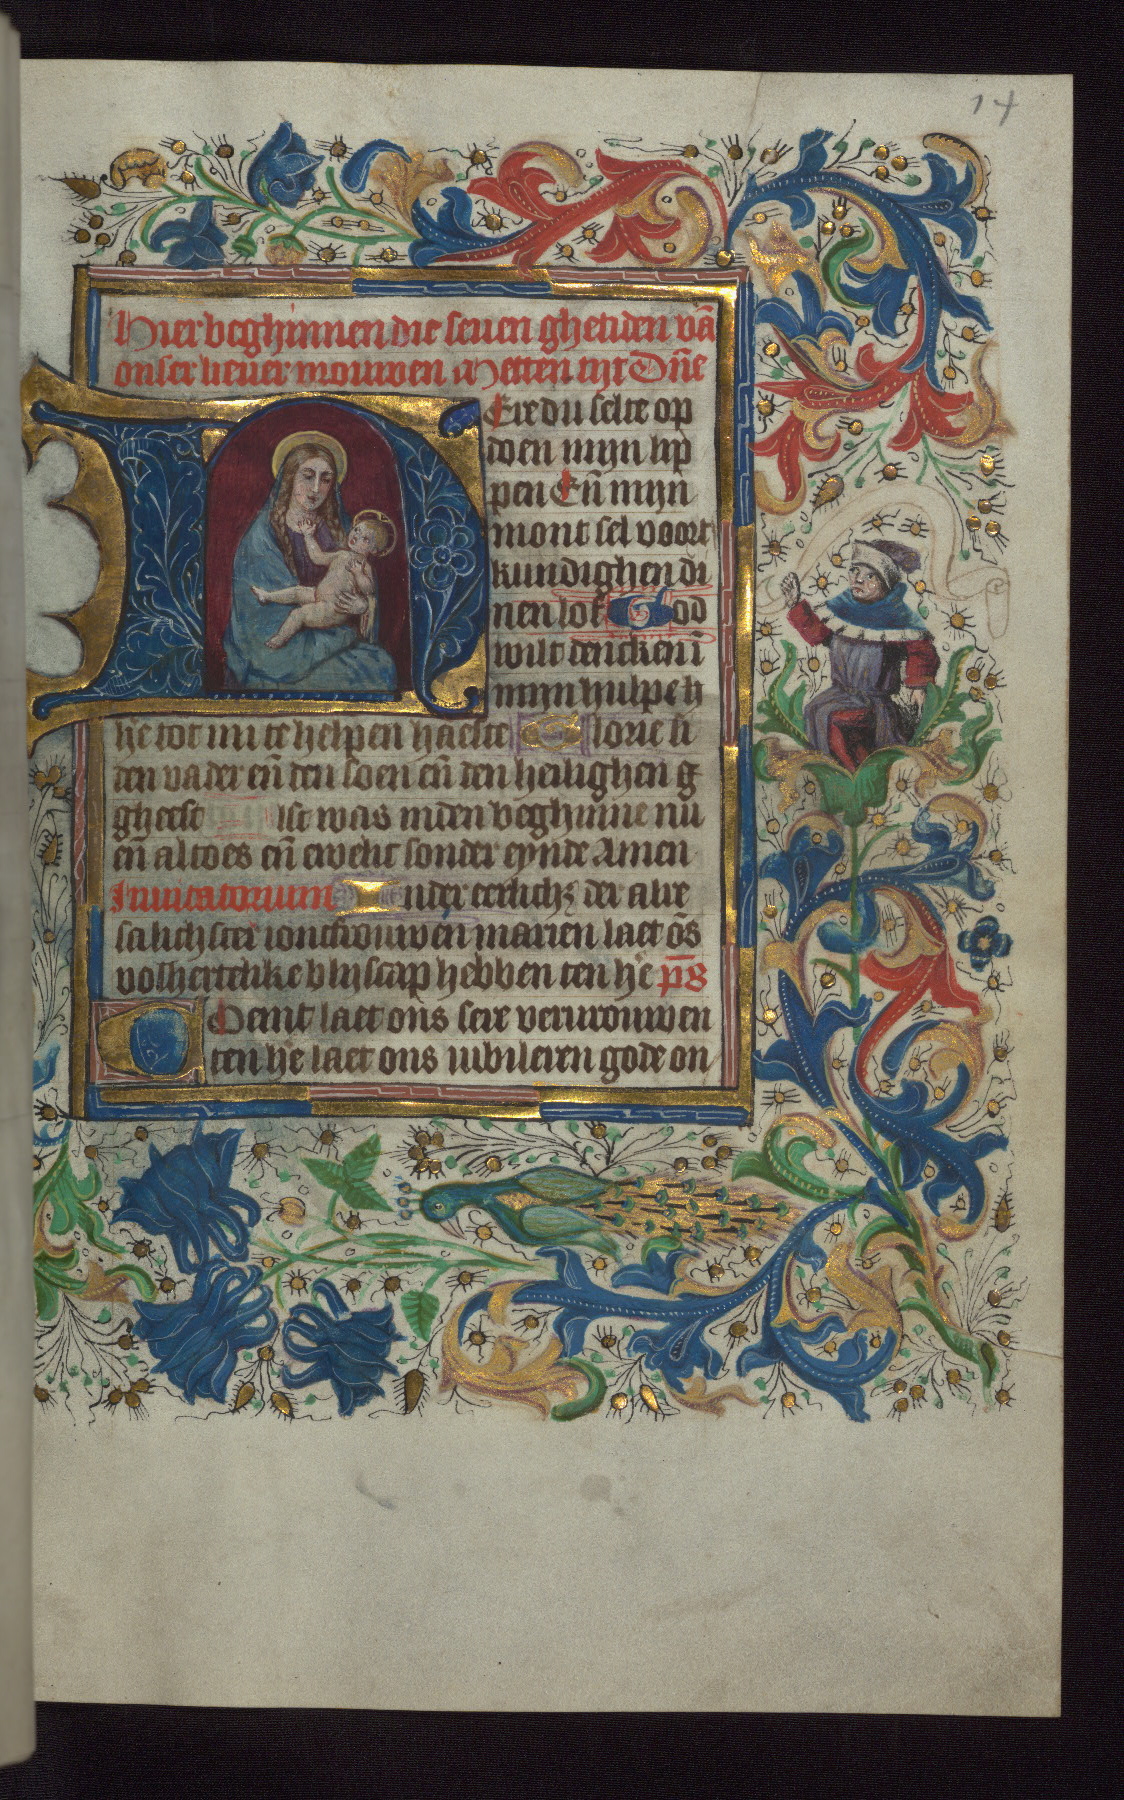 14
Hier beghinnen die seuen ghetiden vā
onser lieuer vrouwen Metten tijt Dn̄e
HEre du selte op
doen mijn lip
pen En̄ mijn
mont sel voort
kundighen di
nen lof God
wilt dencken ī
mijn hulpe h
he tot mi te helpen haeste Glorie si
den vader en̄ den soen en̄ den heilighen g
gheest ist was inden beghinne nu
en̄ altoes en̄ ewelic sonder eynde Amen
Inuitatorium Inder eerlich der alre
salichster ioncfrouwen marien laet ōs
volhertelike bliscap hebben den he p̄s
Comt laet ons sere verurouwen
den he laet ons iubileren gode on